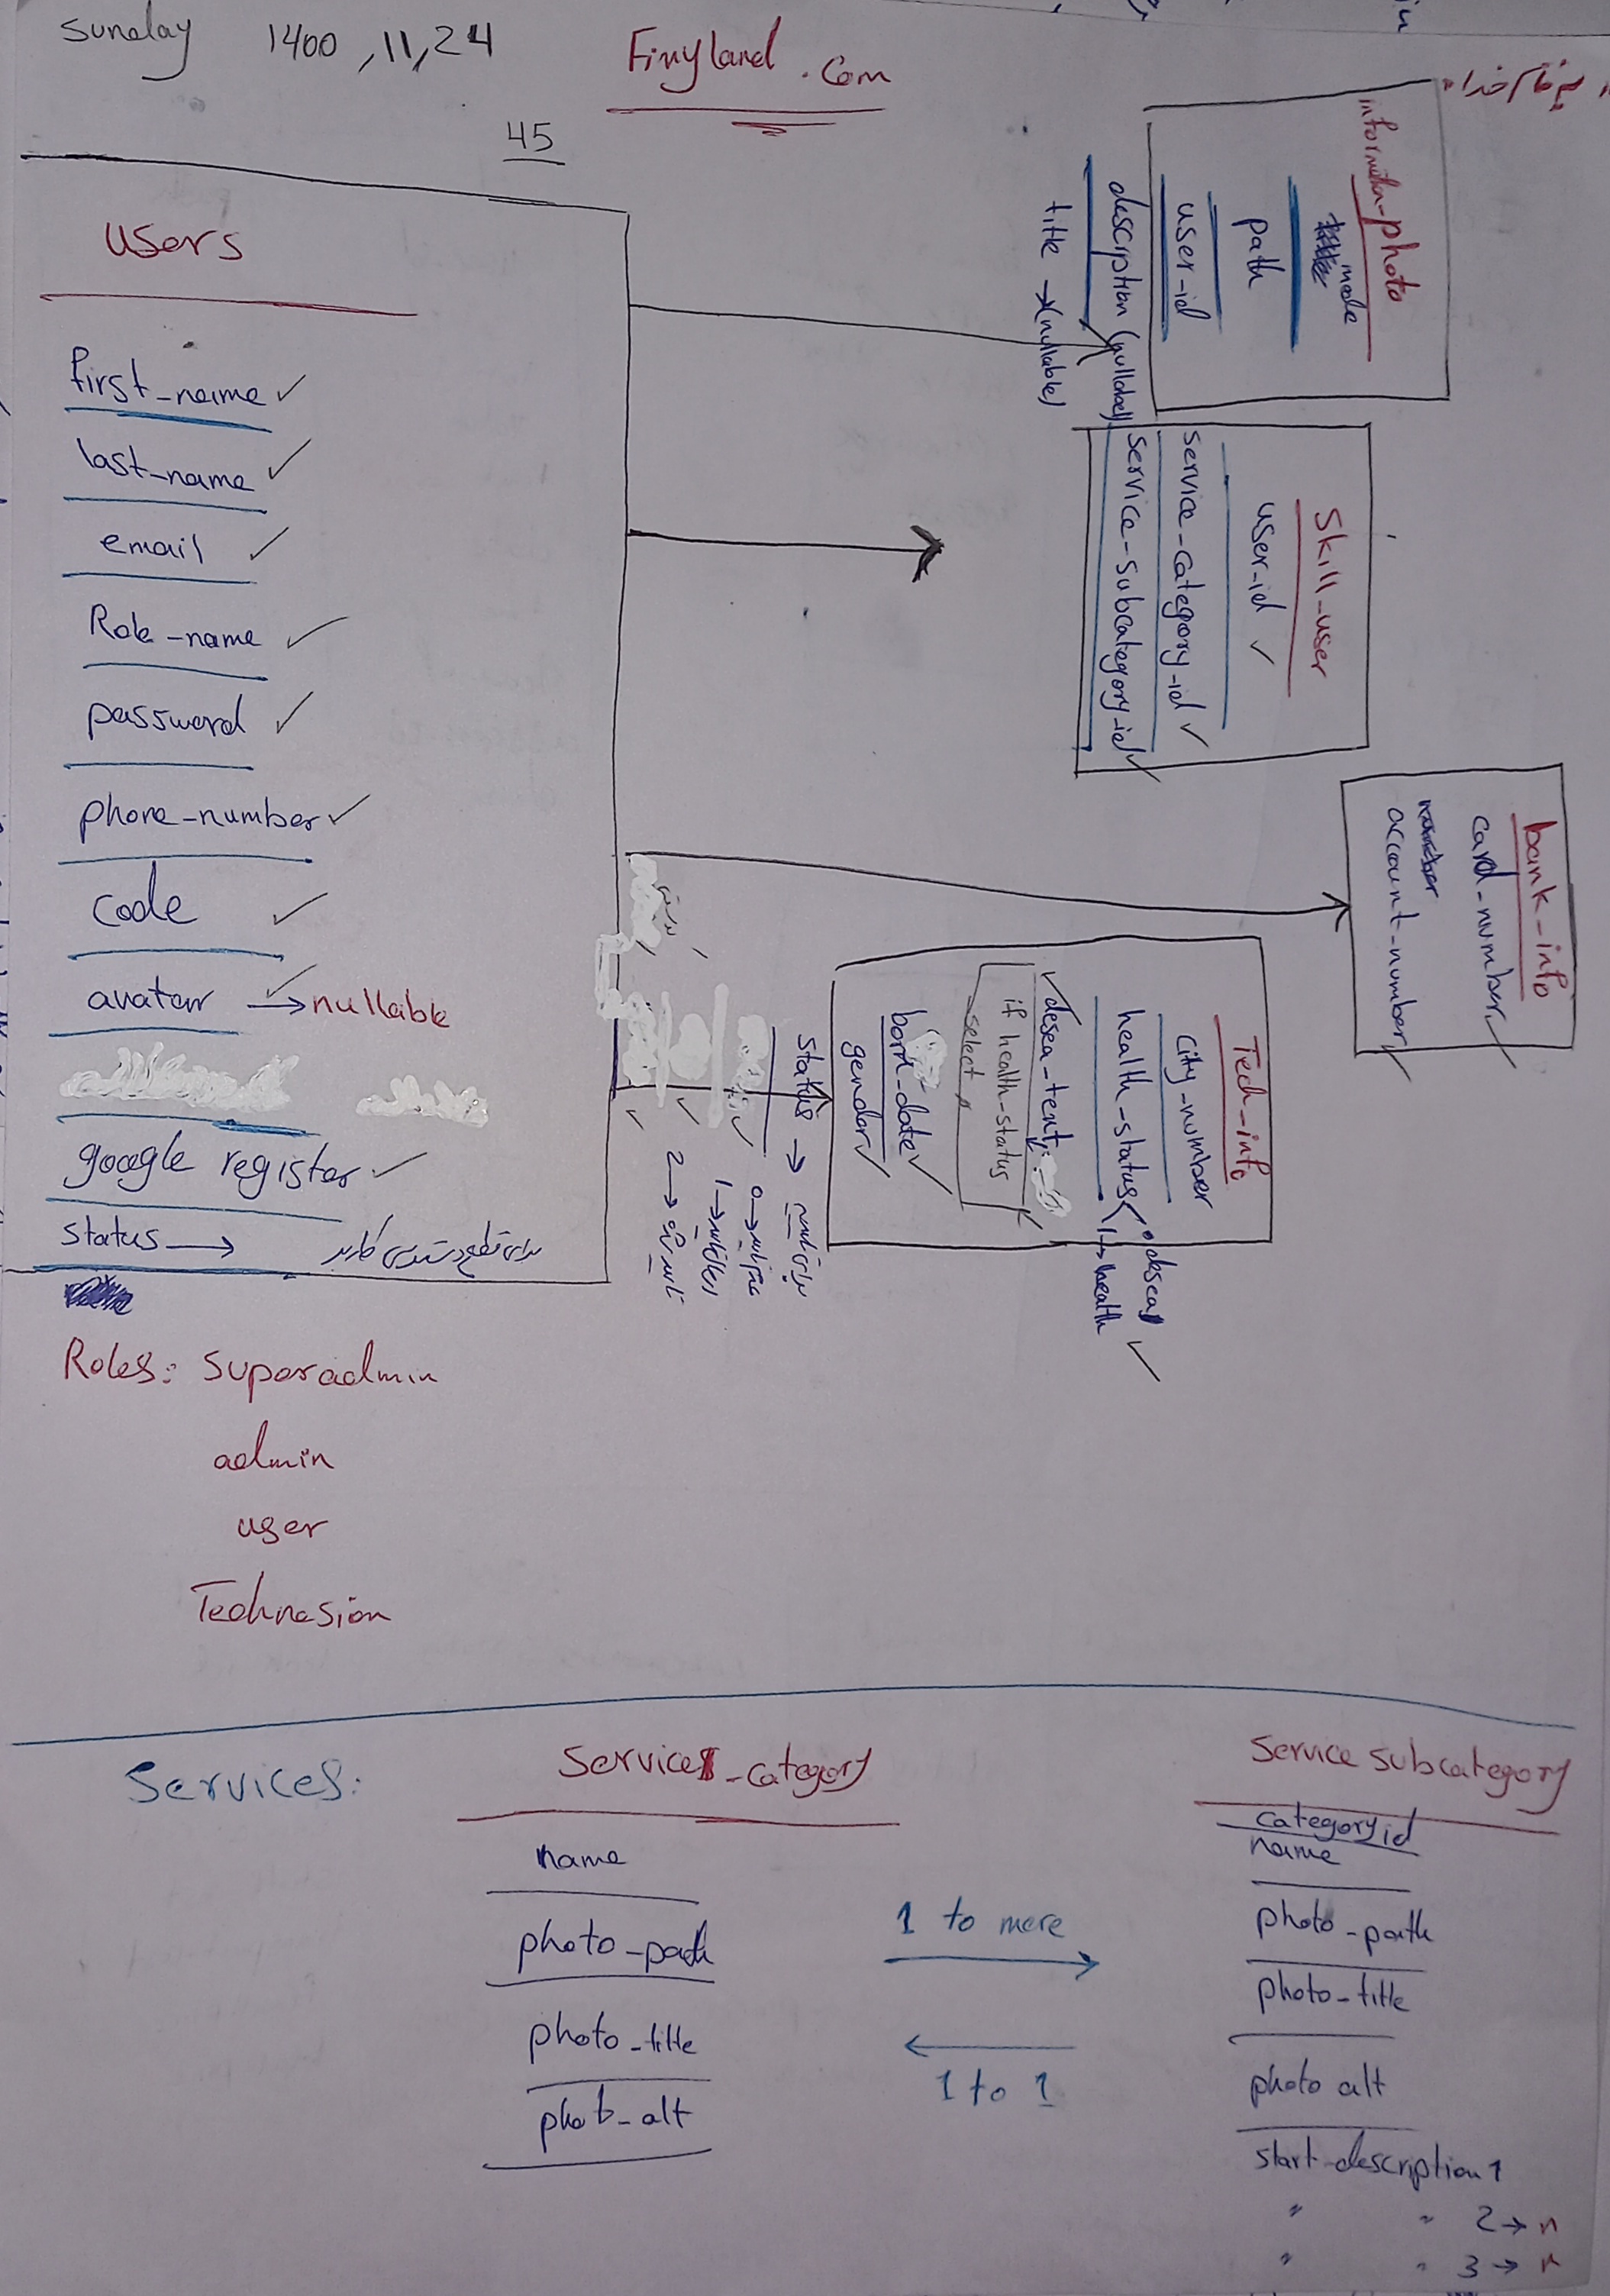 Sunday 1400,11,24
Finyland.com
45
users
first_name ✓
last_name ✓
email ✓
Role-name ✓
password ✓
phone-number ✓
code ✓
avatar → nullable
google register ✓
status → برای قطع دسترسی کاربر
Roles: Superadmin
admin
user
Technesion
information-photo
mode
path
user-id
description (nullabel)
title → (nullable)
Skill-user
user-id ✓
service-category-id ✓
service-subcategory-id ✓
bank-info
card-number ✓
account-number ✓
Tech-info
City-number
health-status
0 desea
1 → health ✓
desea-text
if health-status
select
born-date ✓
gender ✓
status →
0 →
1 →
2 →
Services:
Services_category
name
photo_path
photo_title
phot_alt
1 to more
1 to 1
Service subcategory
category id
name
photo_path
photo_title
photo alt
start_description 1
" " 2 → n
" " 3 → n